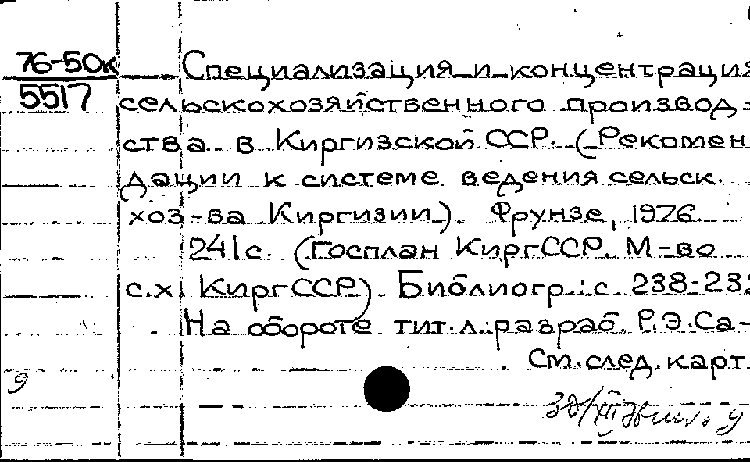 76-50к Специализация и концентрация
5517 сельскохозяйственного производ-
ства в Киргизской ССР. (Рекомен
дации к системе ведения сельск.
хоз-ва Киргизии). Фрунзе, 1976
241с. (Госплан КиргССР. М-во
с.х. КиргССР). Библиогр.: с. 238-232
На обороте тит.л.: разраб. Р.Э.Са-
См. след. карт.
9